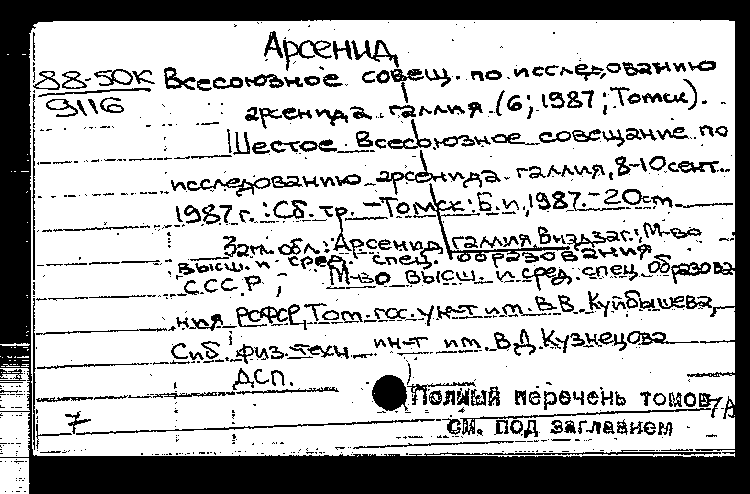 Арсенид
88-50К Всесоюзное совещ. по исследованию
9116 арсенида галлия (6; 1987; Томск).
Шестое Всесоюзное совещание по
исследованию арсенида галлия, 8-10 сент.
1987 г. : Сб. тр. - Томск : Б.и., 1987. - 20 см.
Загл. обл.: Арсенид галлия. В надзаг.: М-во
высш. и сред. спец. образования
СССР; М-во высш. и сред. спец. образова-
ния РСФСР, Том. гос. ун-т им. В.В. Куйбышева,
Сиб. физ. техн. ин-т им. В.Д. Кузнецова
ДСП.
Полный перечень томов
7
см. под заглавием